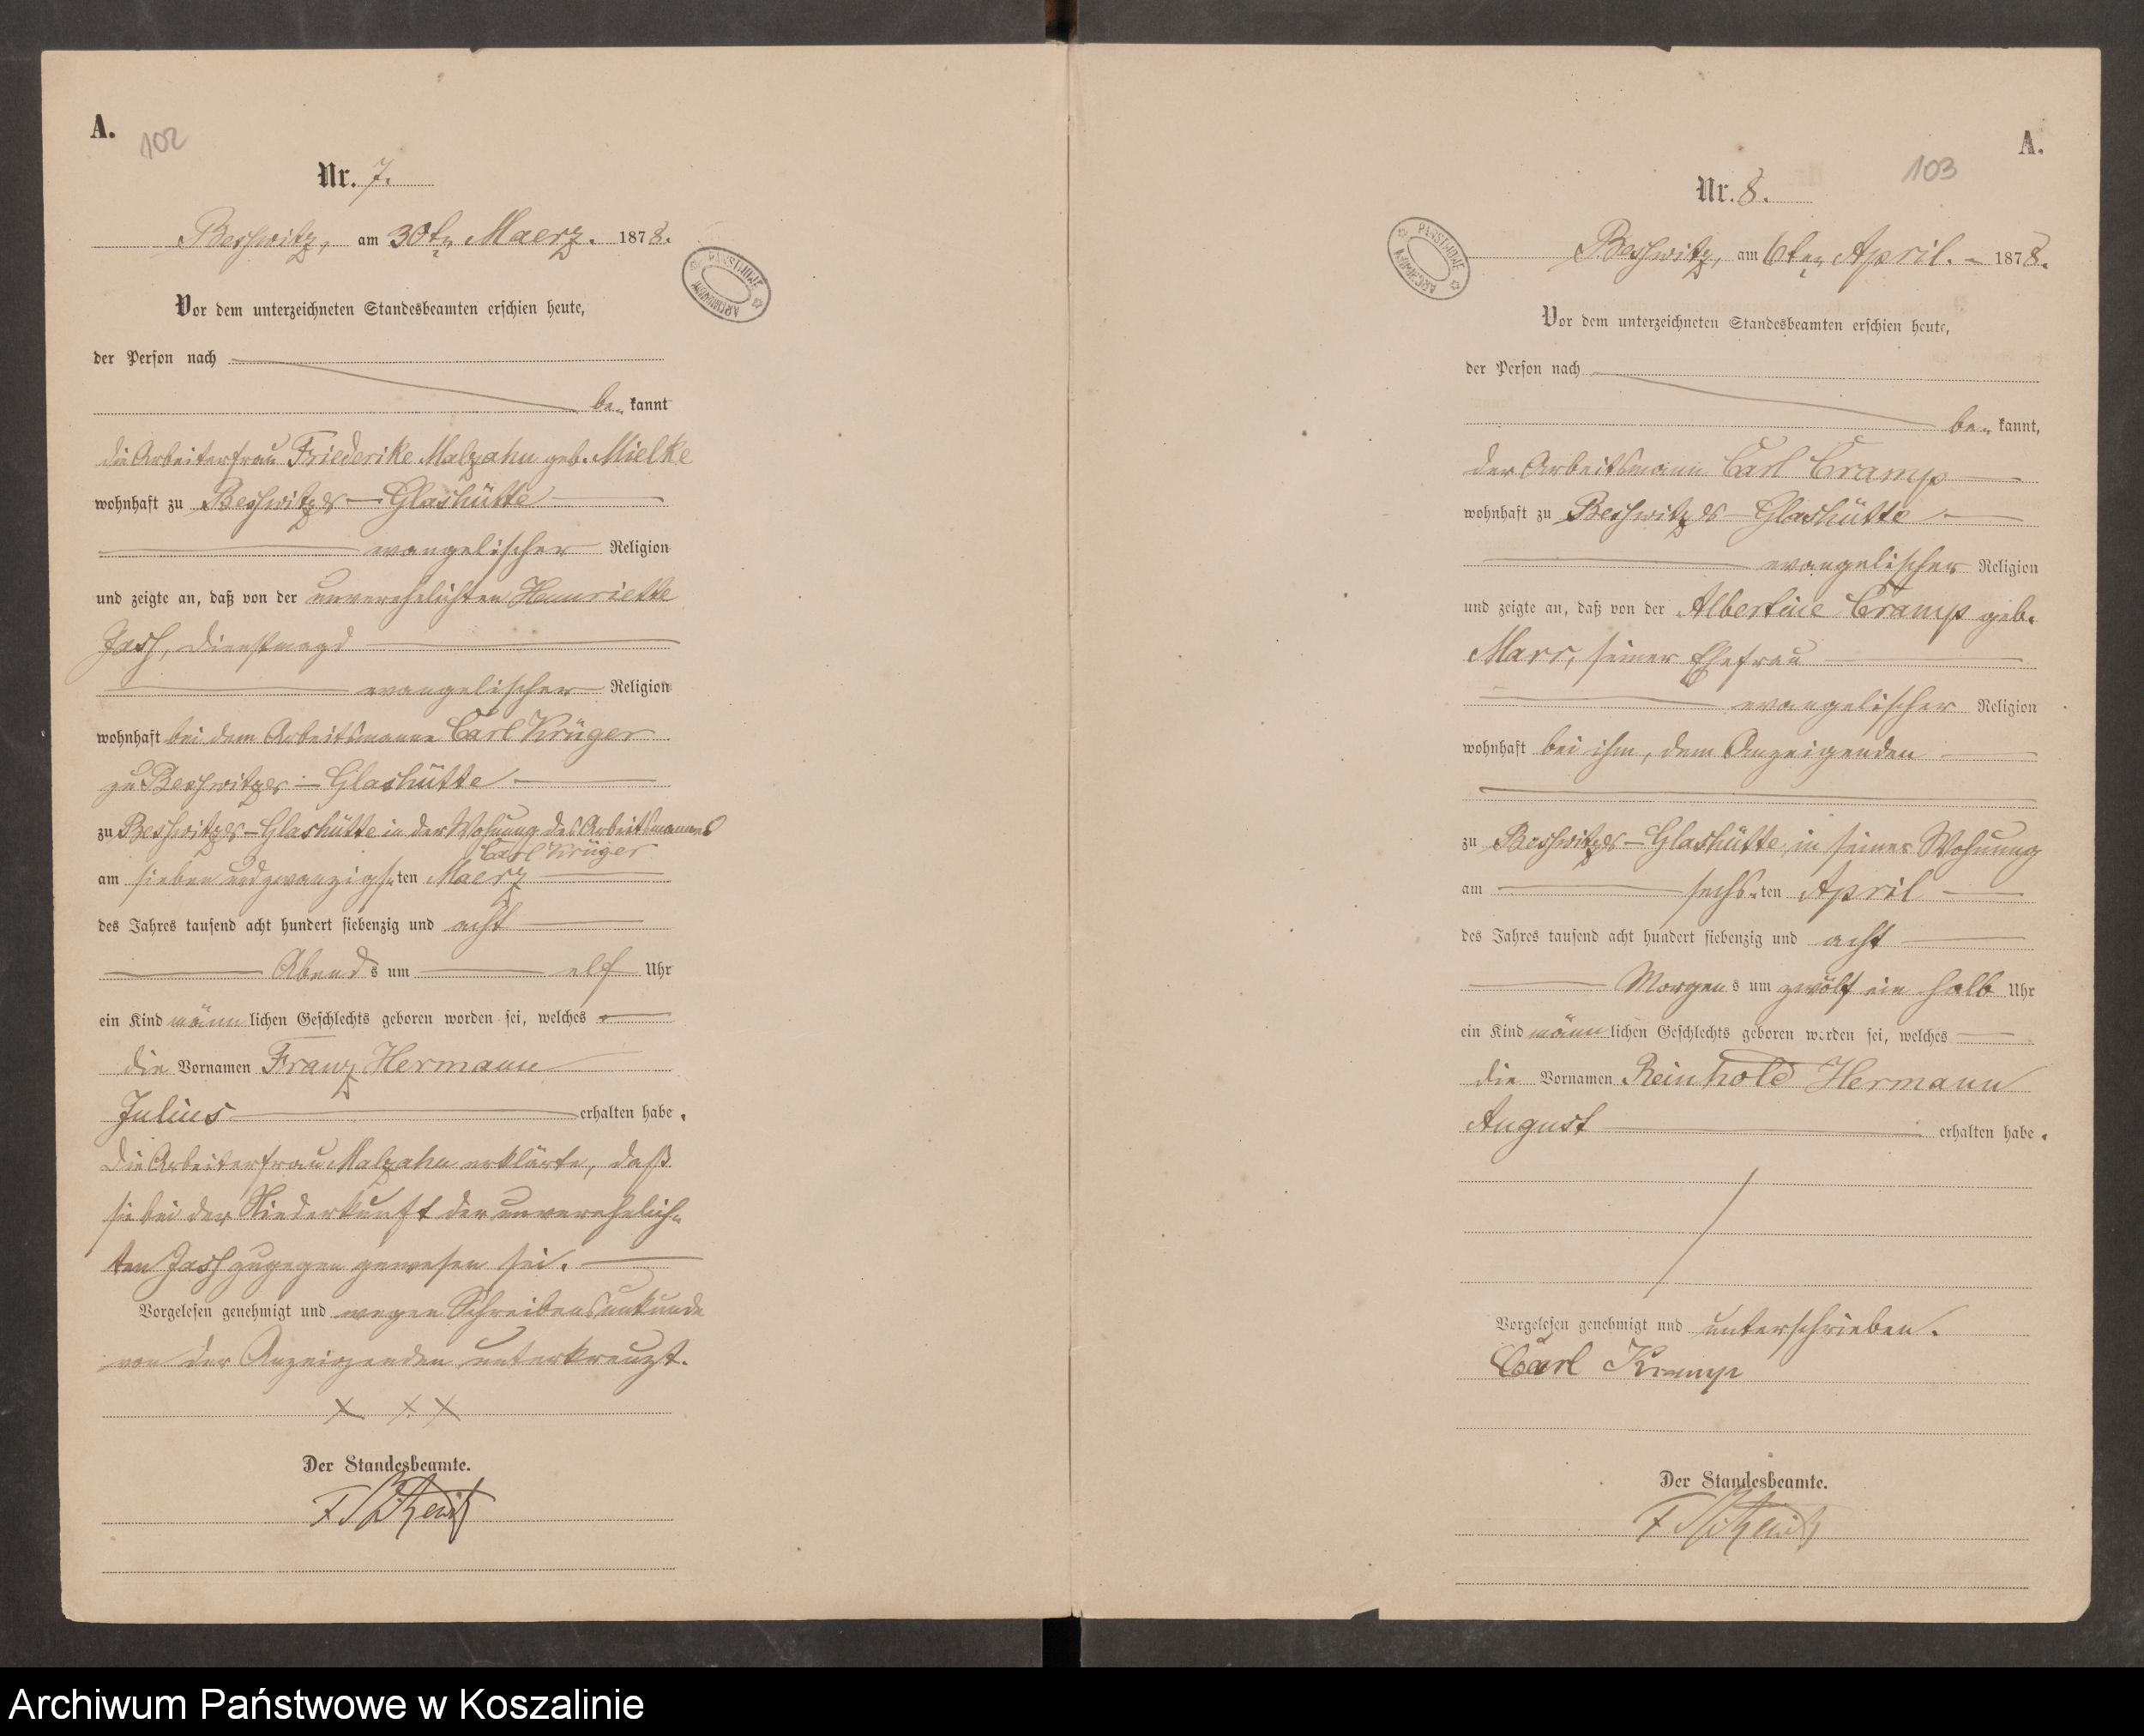 A.
102
Nr. 7.
Beßwitz, am 30ten Maerz. 1878.
Vor dem unterzeichneten Standesbeamten erschien heute,
der Person nach
be= kannt
die Arbeiterfrau Friederike Malzahn geb. Mielke
wohnhaft zu Beßwitzer-Glashütte
evangelischer Religion
und zeigte an, daß von der unverehelichten Henriette
Jash, Dienstmagd
evangelischer Religion
wohnhaft bei dem Arbeitsmanne Carl Krüger
zu Beßwitzer-Glashütte
zu Beßwitzer-Glashütte in der Wohnung des Arbeitsmannes
Carl Krüger
am sieben und zwanzigs=ten Maerz
des Jahres tausend acht hundert siebenzig und acht
Abends um elf Uhr
ein Kind männlichen Geschlechts geboren worden sei, welches
die Vornamen Franz Hermann
Julius erhalten habe.
Die Arbeiterfrau Malzahn erklärte, daß
sie bei der Niederkunft der unverehelich=
ten Jash zugegen gewesen sei.
Vorgelesen genehmigt und wegen Schreibensunkunde
von der Anzeigenden unterkreuzt.
X X X
Der Standesbeamte.
PAŃSTWOWE ARCHIWUM
A.
103
Nr. 8.
Beßwitz, am 6ten April. 1878.
Vor dem unterzeichneten Standesbeamten erschien heute,
der Person nach
be= kannt,
der Arbeitsmann Carl Cramp
wohnhaft zu Beßwitzer-Glashütte
evangelischer Religion
und zeigte an, daß von der Albertine Cramp geb.
Marr, seiner Ehefrau
evangelischer Religion
wohnhaft bei ihm, dem Anzeigenden
zu Beßwitzer-Glashütte, in seiner Wohnung
am sechs=ten April
des Jahres tausend acht hundert siebenzig und acht
Morgens um zwölf ein halb Uhr
ein Kind männlichen Geschlechts geboren worden sei, welches
die Vornamen Reinhold Hermann
August erhalten habe.
Vorgelesen genehmigt und unterschrieben.
Carl Kramp
Der Standesbeamte.
PAŃSTWOWE ARCHIWUM
Archiwum Państwowe w Koszalinie